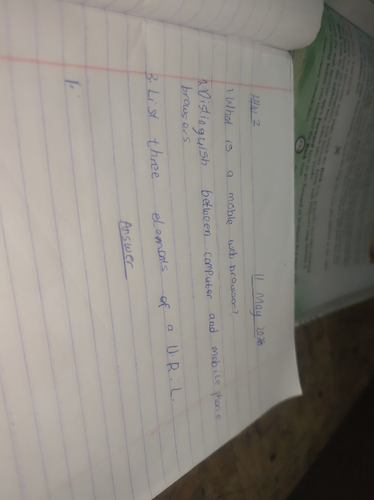 11 May 2026
1. What is a mobile web browser?
2. Distinguish between computer and mobile phone
browsers
3. List three elements of a U.R.L.
Answer
1.